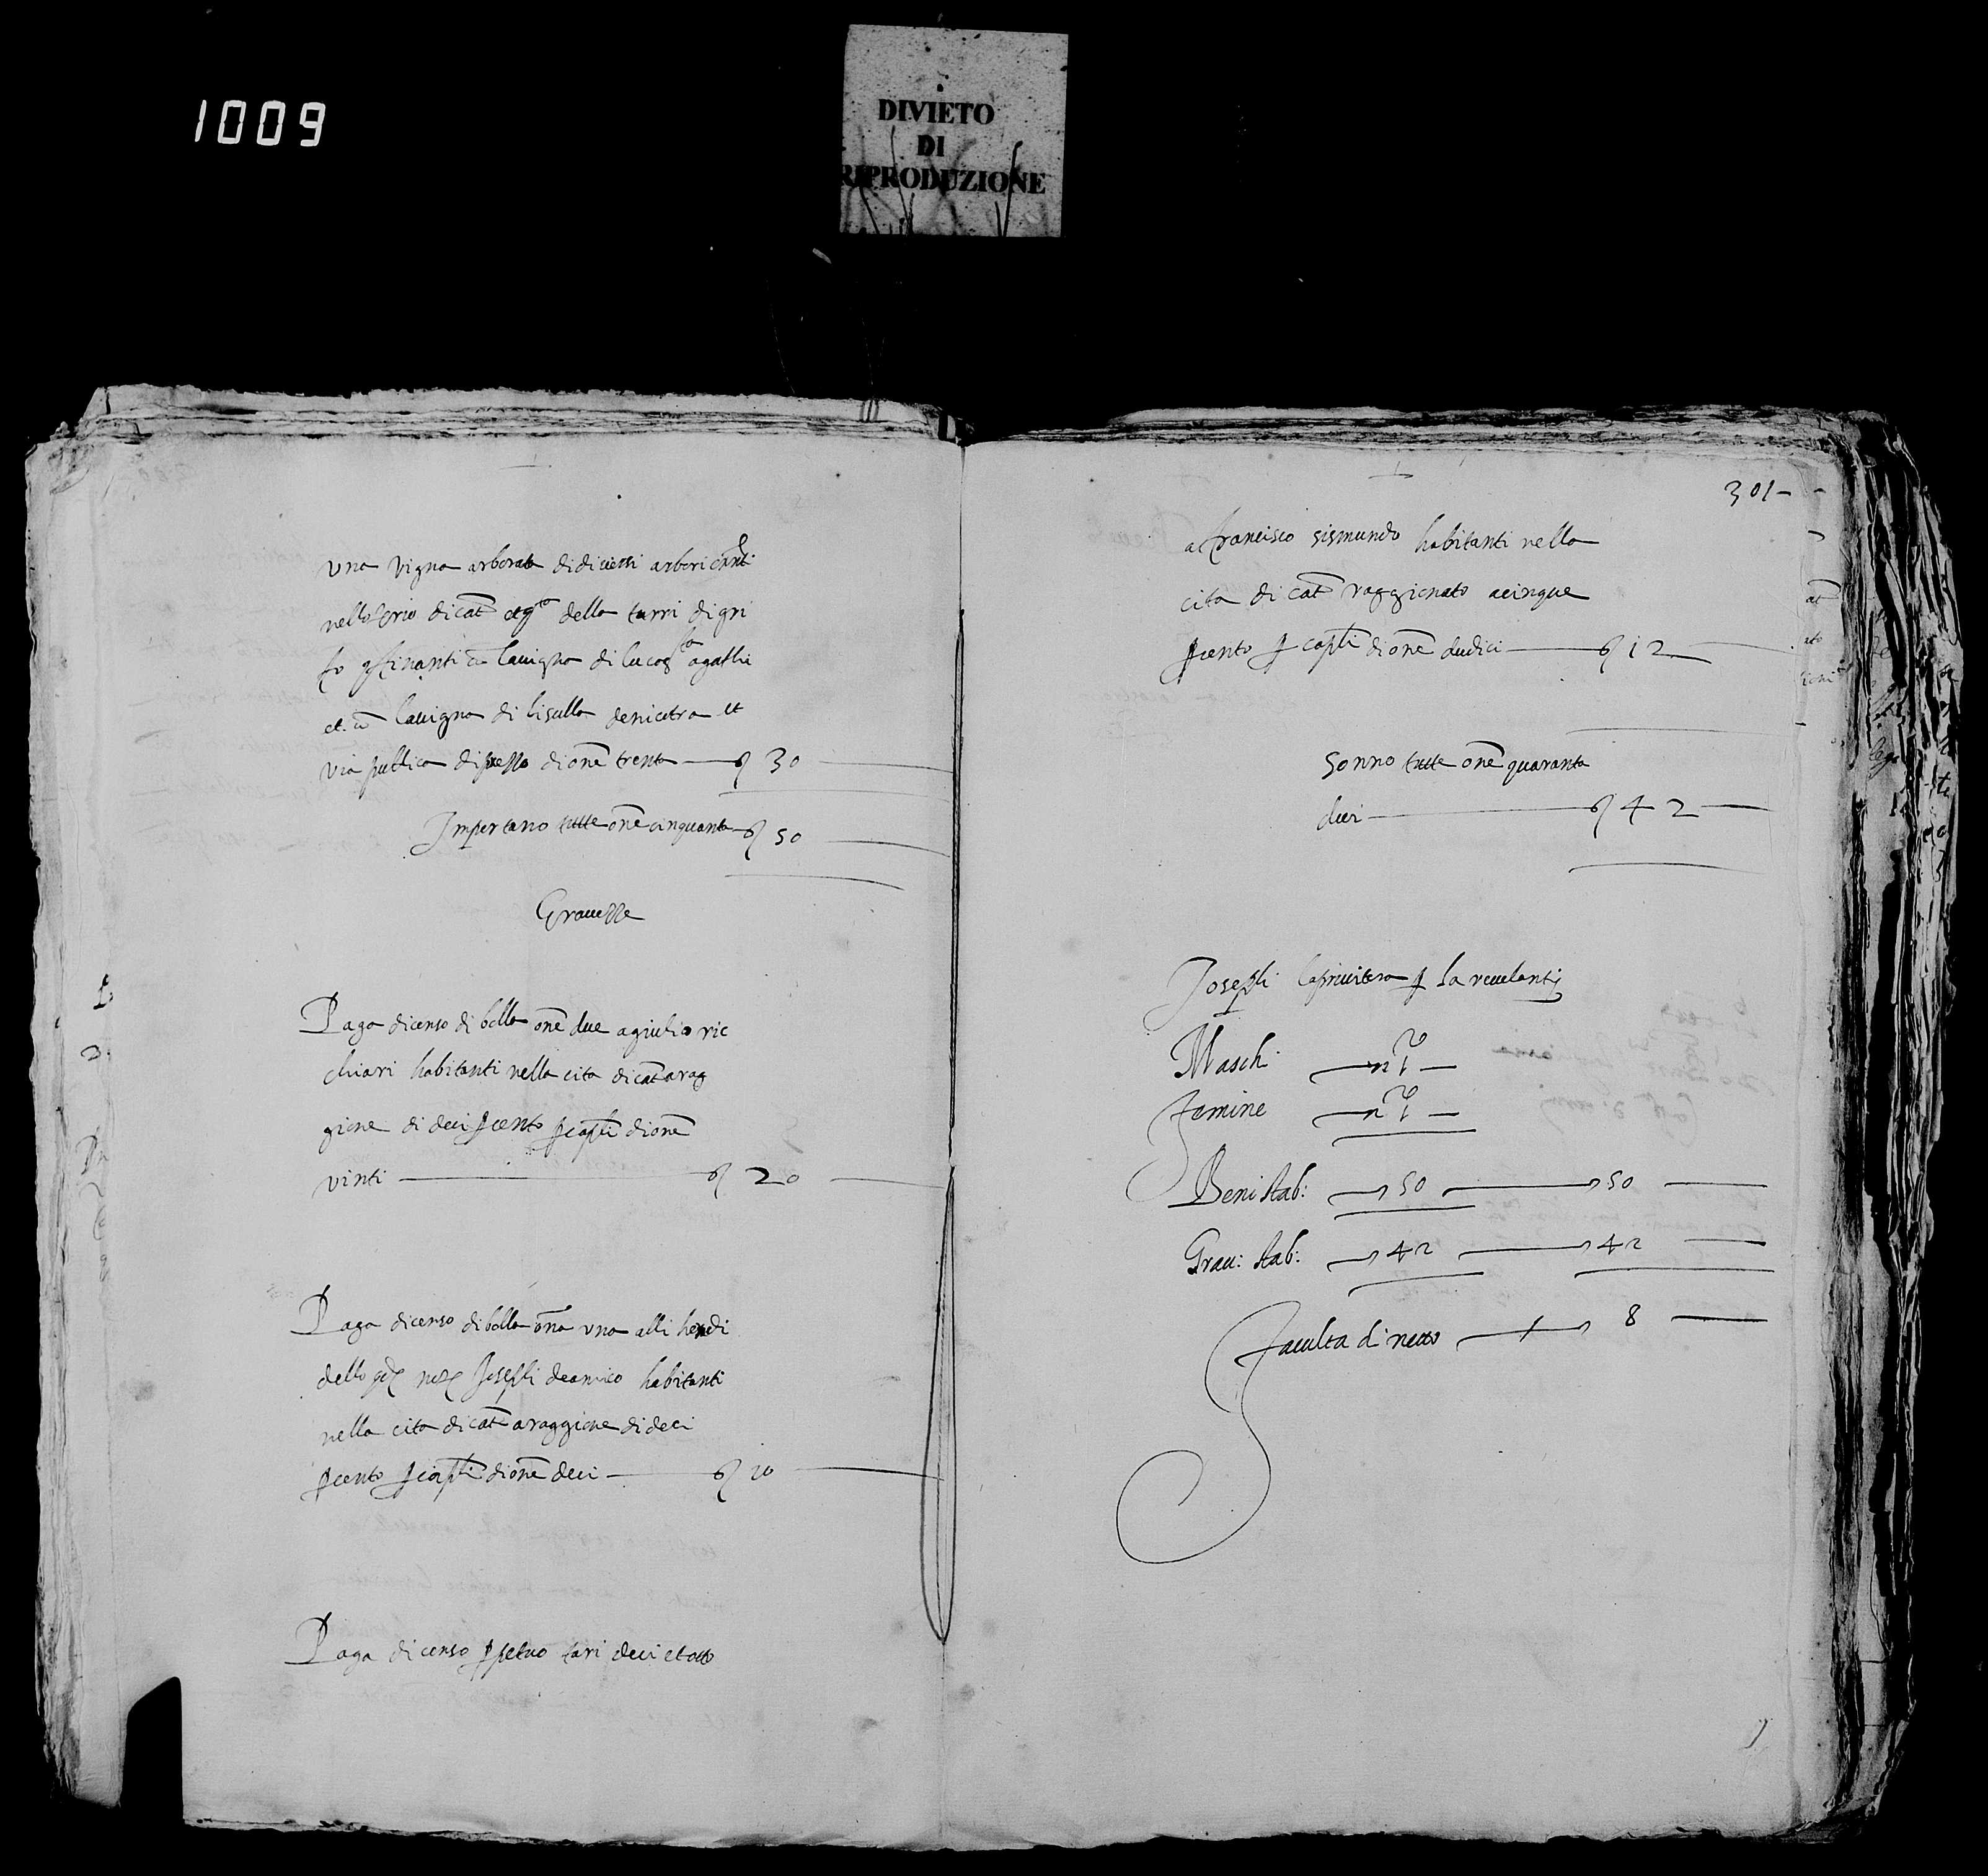 1009
DIVIETO
DI
RIPRODUZIONE
una vigna arborata di
nello di cat della turri di gri
fo finanti la vigna di luca agathi
et la vigna di lisulla denicetra et
via publica di prezzo di one trenta 30
Importano tutte one cinquanta 50
Gravezze
Paga di censo di bolla one due a giulio ric
chiari habitanti nella cita di cat a rag
gione di deci p cento p capli di one
vinti 20
Paga di censo di bolla ona una alli heredi
dello Joseph deamico habitanti
nella cita di cat a raggione di deci
p cento p capli di one deci 10
Paga di censo ppetuo tari deci et otto
301
a francisco sismundo habitanti nella
cita di cat raggionato a cinque
p cento p capli di one dudici 12
Sonno tutte one quaranta
dui 42
Joseph laprivitera p la revelanti
Maschi n 1
femine n 1
Beni stab: 50 50
Grav: stab: 42 42
faculta di netto 8